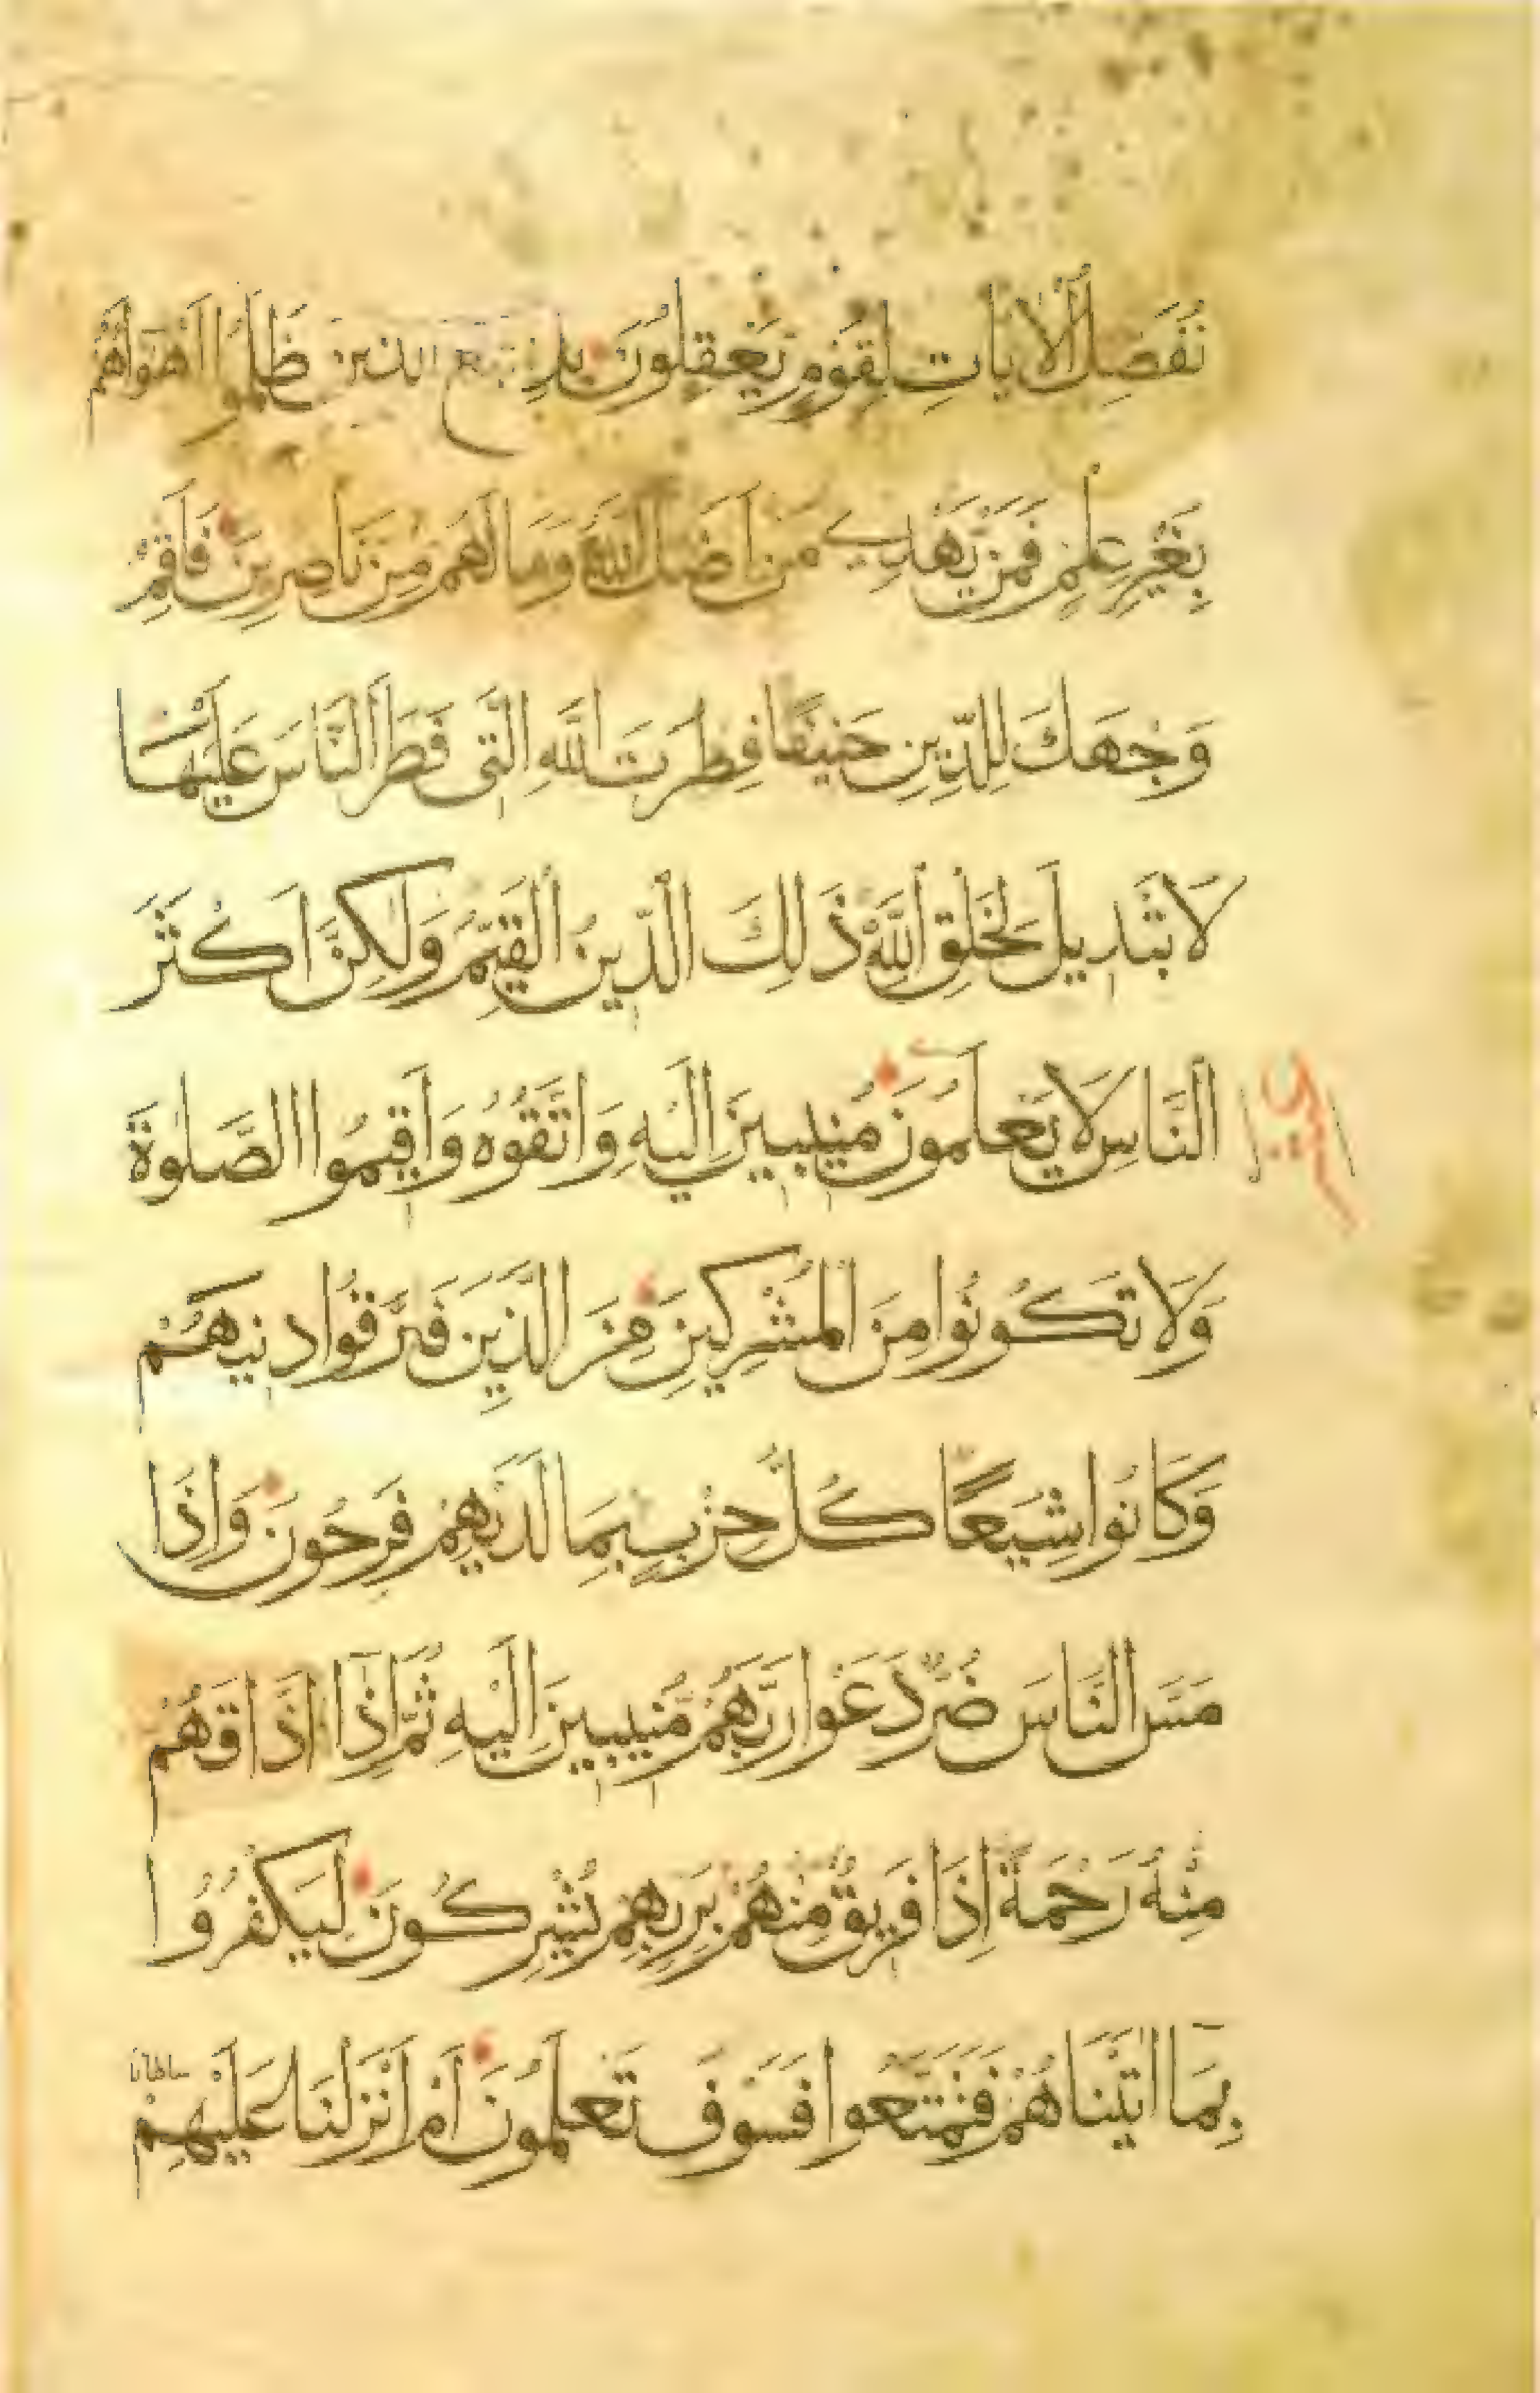 نُفَصِّلُ الْاٰيَاتِ لِقَوْمٍ يَعْقِلُونَ بَلِ اتَّبَعَ الَّذِينَ ظَلَمُوا اَهْوَاءَهُمْ
بِغَيْرِ عِلْمٍ فَمَنْ يَهْدِي مَنْ اَضَلَّ اللّٰهُ وَمَا لَهُمْ مِنْ نَاصِرِينَ فَاَقِمْ
وَجْهَكَ لِلدِّينِ حَنِيفًا فِطْرَتَ اللّٰهِ الَّتِي فَطَرَ النَّاسَ عَلَيْهَا
لَا تَبْدِيلَ لِخَلْقِ اللّٰهِ ذٰلِكَ الدِّينُ الْقَيِّمُ وَلٰكِنَّ اَكْثَرَ
النَّاسِ لَا يَعْلَمُونَ مُنِيبِينَ اِلَيْهِ وَاتَّقُوهُ وَاَقِيمُوا الصَّلٰوةَ
وَلَا تَكُونُوا مِنَ الْمُشْرِكِينَ مِنَ الَّذِينَ فَرَّقُوا دِينَهُمْ
وَكَانُوا شِيَعًا كُلُّ حِزْبٍ بِمَا لَدَيْهِمْ فَرِحُونَ وَاِذَا
مَسَّ النَّاسَ ضُرٌّ دَعَوْا رَبَّهُمْ مُنِيبِينَ اِلَيْهِ ثُمَّ اِذَا اَذَاقَهُمْ
مِنْهُ رَحْمَةً اِذَا فَرِيقٌ مِنْهُمْ بِرَبِّهِمْ يُشْرِكُونَ لِيَكْفُرُوا
بِمَا اٰتَيْنَاهُمْ فَتَمَتَّعُوا فَسَوْفَ تَعْلَمُونَ اَمْ اَنْزَلْنَا عَلَيْهِمْ
سلطانا